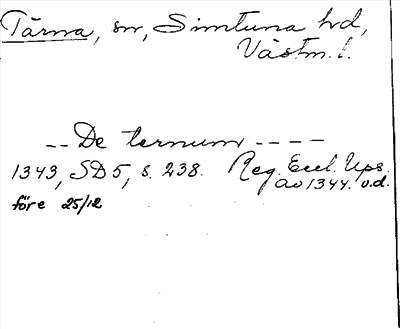 Tärna, sn, Simtuna hd,
Västm. l.
-- De ternum ----
1343, SD 5, s. 238. Reg. Eccl. Ups.
av 1344. o.d.
före 25/12